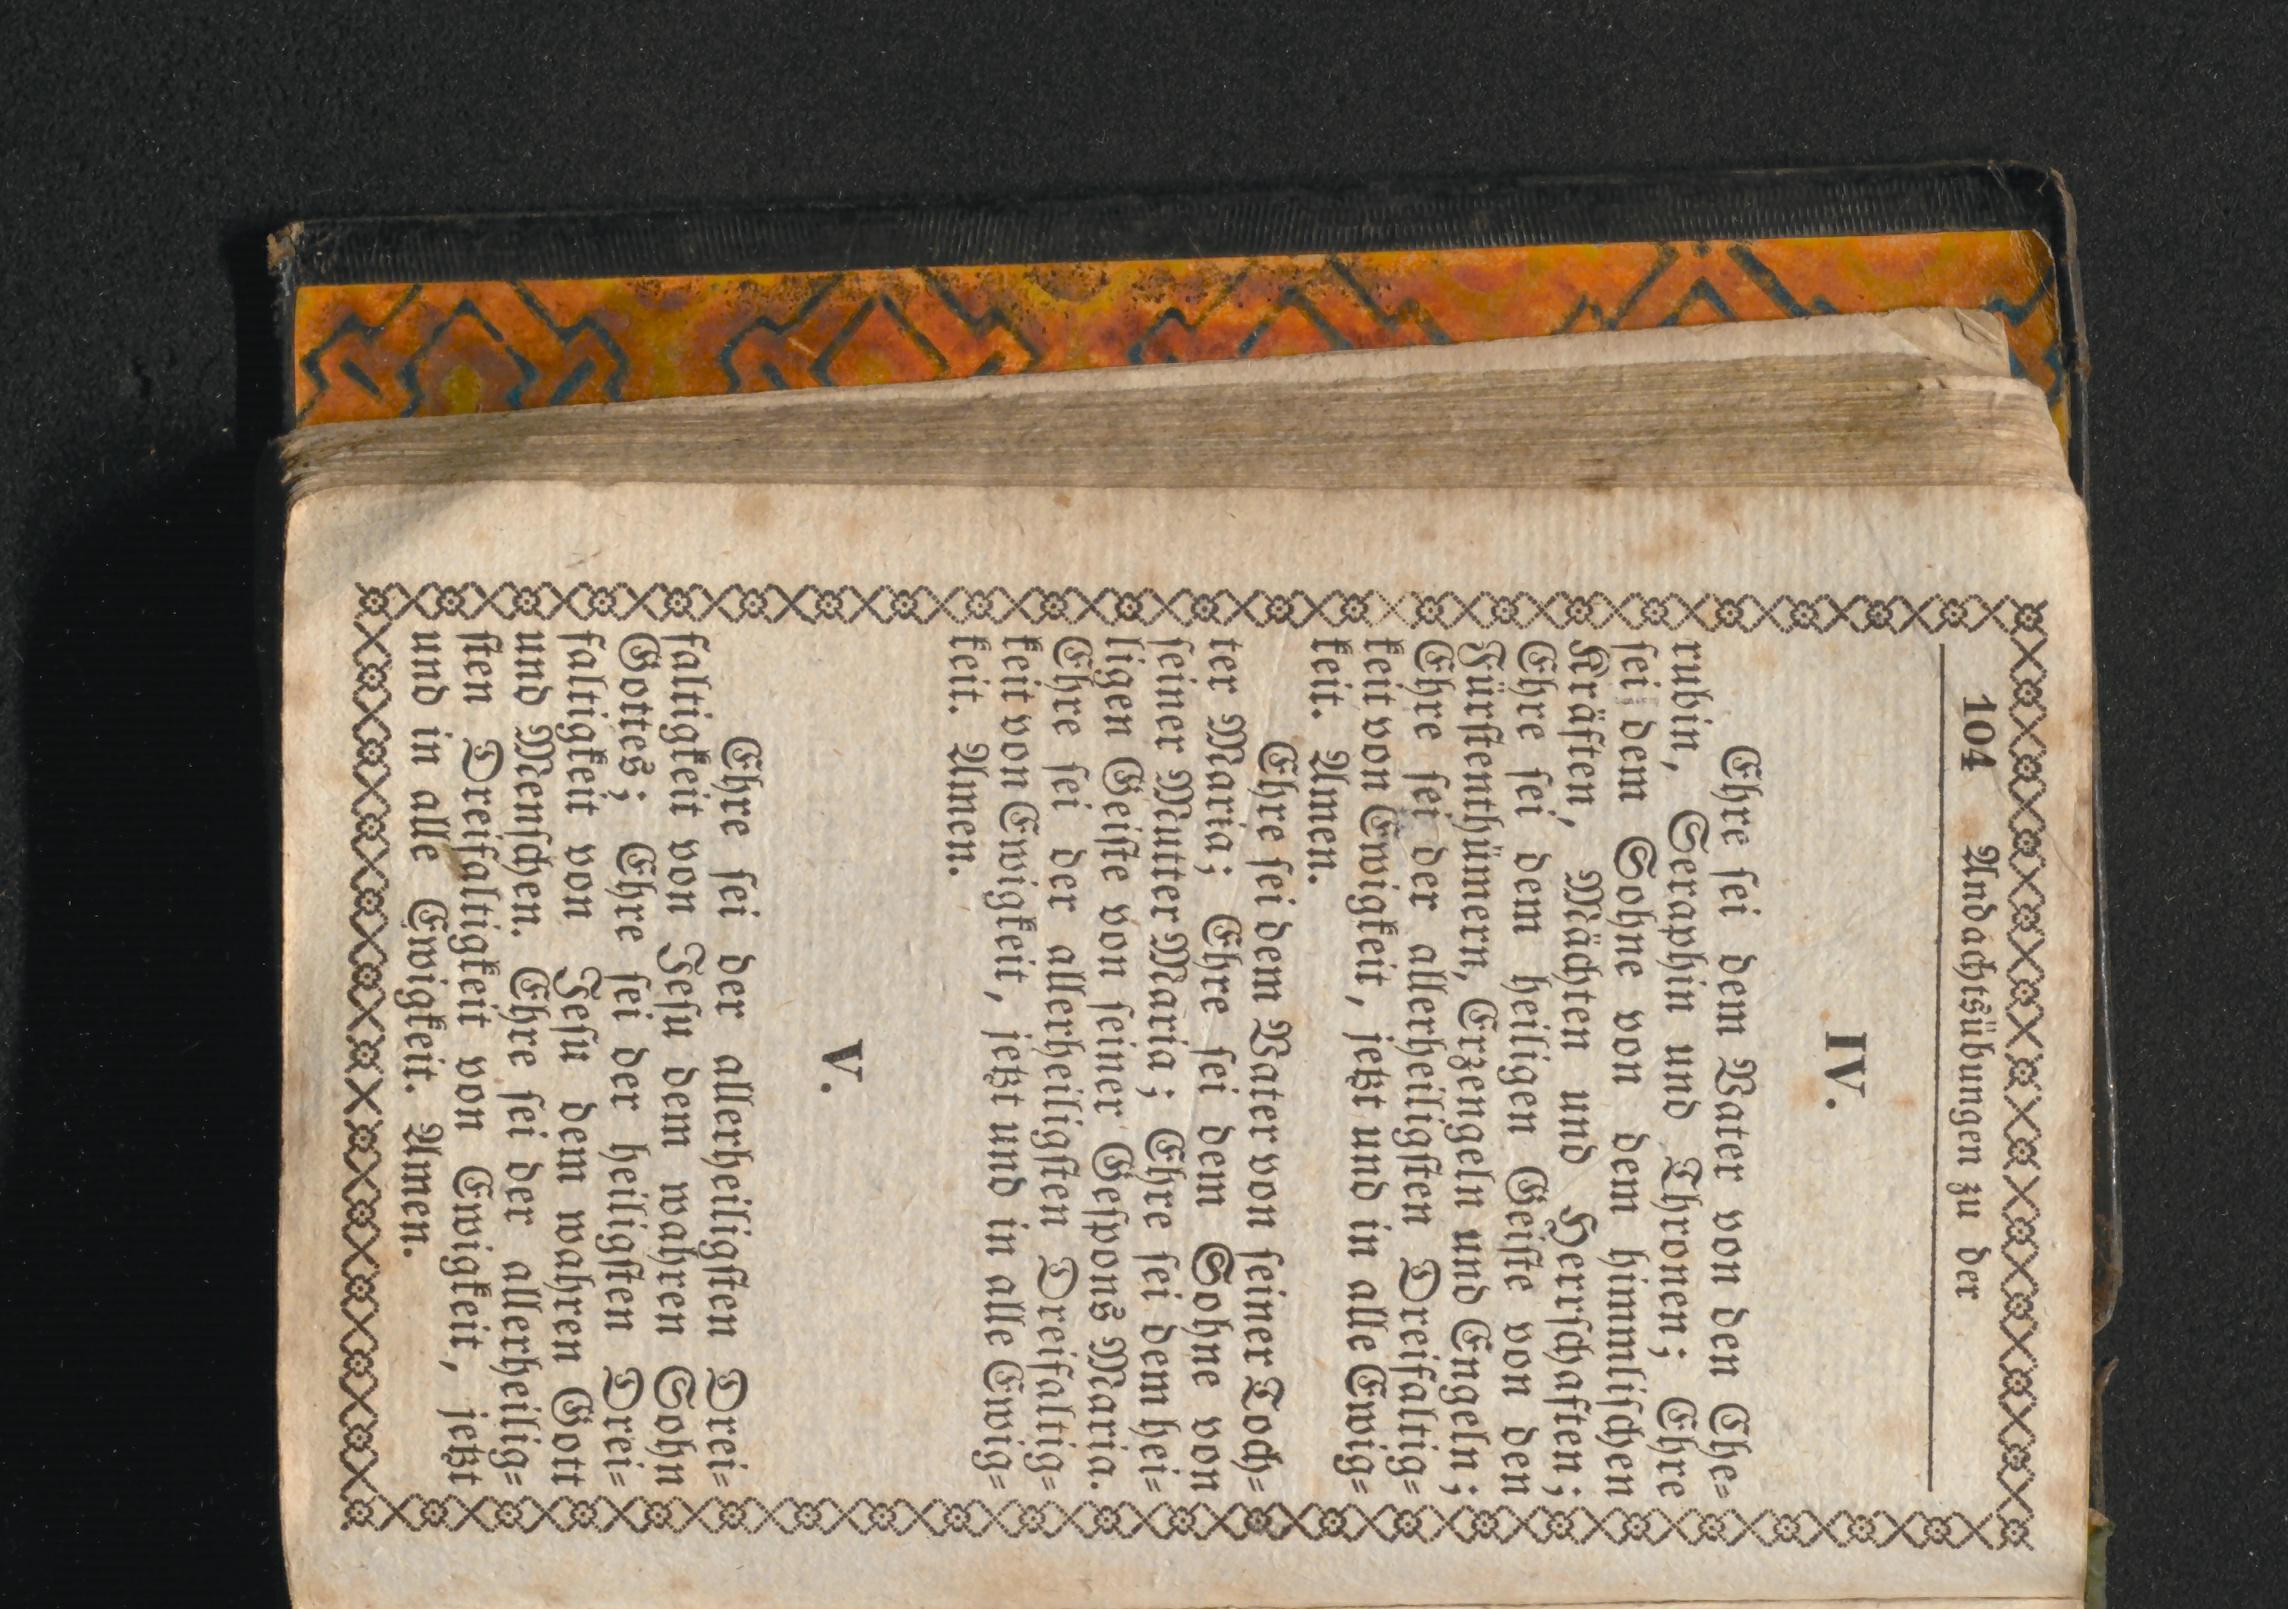 104 Andachtsübungen zu der
IV.
Ehre sei dem Vater von den Che=
rubin, Seraphin und Thronen; Ehre
sei dem Sohne von dem himmlischen
Kräften, Mächten und Herrschaften;
Ehre sei dem heiligen Geiste von den
Fürstenthümern, Erzengeln und Engeln;
Ehre sei der allerheiligsten Dreifaltig=
keit von Ewigkeit, jetzt und in alle Ewig=
keit. Amen.
Ehre sei dem Vater von seiner Toch=
ter Maria; Ehre sei dem Sohne von
seiner Mutter Maria; Ehre sei dem hei=
ligen Geiste von seiner Gespons Maria.
Ehre sei der allerheiligsten Dreifaltig=
keit von Ewigkeit, jetzt und in alle Ewig=
keit. Amen.
V.
Ehre sei der allerheiligsten Drei=
faltigkeit von Jesu dem wahren Sohn
Gottes; Ehre sei der heiligsten Drei=
faltigkeit von Jesu dem wahren Gott
und Menschen. Ehre sei der allerheilig=
sten Dreifaltigkeit von Ewigkeit, jetzt
und in alle Ewigkeit. Amen.